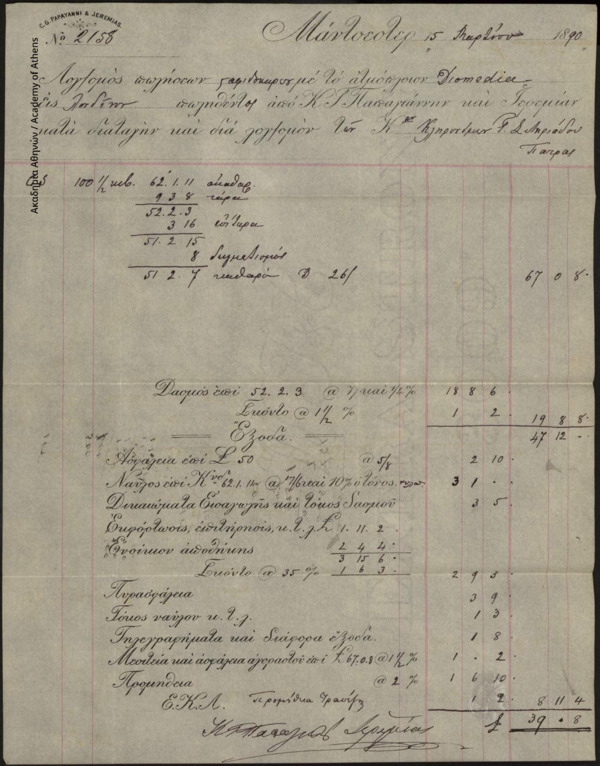 C. G. PAPAYANNI & JEREMIAS.
Nº 2158
Μάντσεστερ 15 Μαρτίου 1890
Λογ/σμὸς πωλήσεως σταφιδοκάρπου μὲ τὸ ἀτμόπλοιον Diomedia
εἰς Λονδῖνον πωληθέντος ἀπὸ Κ Γ Παπαγιάννην καὶ Ἱερεμίαν
κατὰ διαταγὴν καὶ διὰ λογ/σμὸν τῶν Κων Κληρονόμων
Πάτρας
100 1/2 κιβ. 62.1.11 ἀκαθαρ.
9 3 8 τάρα
52.2.3
3 16 ἐπίταρα
51.2 15
8 δειγματισμός
51 2. 7 καθαρόν @ 26/ 67 0 8
Δασμὸς ἐπὶ 52.2.3 @ 7/ καὶ 1/4 % 18 8 6
Σκόντο @ 1 1/2 % 1 2 19 8 8
Ἔξοδα. 47 12 -
Ἀσφάλεια ἐπὶ £ 50 @ 5/8 2 10
Ναῦλος ἐπὶ 62.1.11 @ 17/6 καὶ 10% ὁ τόνος 3 1 -
Δικαιώματα Εἰσαγωγῆς καὶ τόκος δασμοῦ 3 5
Ἐκφόρτωσις, ἐπιτήρησις, κ.τ.λ. £ 1.11 2
Ἐνοίκιον ἀποθήκης 2 4 4
3 15 6
Σκόντο @ 35 % 1 6 3 2 9 3
Πυρασφάλεια 3 9
Τόκος ναύλου κ.τ.λ. 1 3
Τηλεγραφήματα καὶ διάφορα ἔξοδα. 1 8
Μεσιτεία καὶ ἀσφάλεια ἀγοραστοῦ ἐπὶ £ 67.0.8 @ 1 1/2 % 1 - 2
Προμήθεια @ 2 % 1 6 10
Ε.Κ.Λ. Προμήθεια Τραπέζης 1 2 8 11 4
£ 39 - 8
Κ Γ Παπαγιάννης Ἱερεμίας
Ακαδημία Αθηνών / Academy of Athens